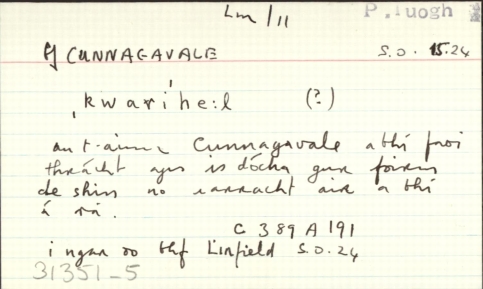 Lm/11
P. Tuogh
CUNNAGAVALE S.O. 15.24
ˌkwariˈhe:l (?)
an t-ainm Cunnagavale a bhí faoi
thrácht agus is dócha gur foirm
de shin no iarracht air a bhí
á rá.
C 389 A 191
i ngar do thf Linfield S.O. 24
31351-5